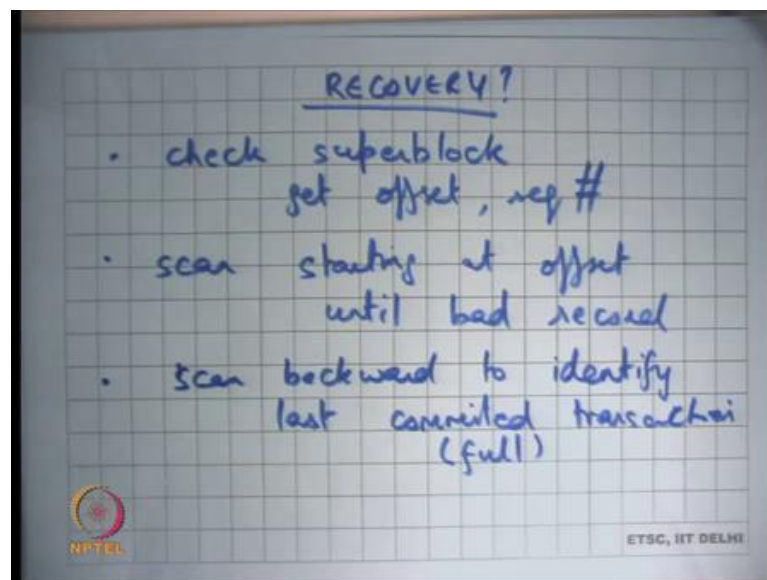 RECOVERY?
· check superblock
get offset, seq #
· scan starting at offset
until bad record
· scan backward to identify
last committed transaction
(full)
NPTEL
ETSC, IIT DELHI